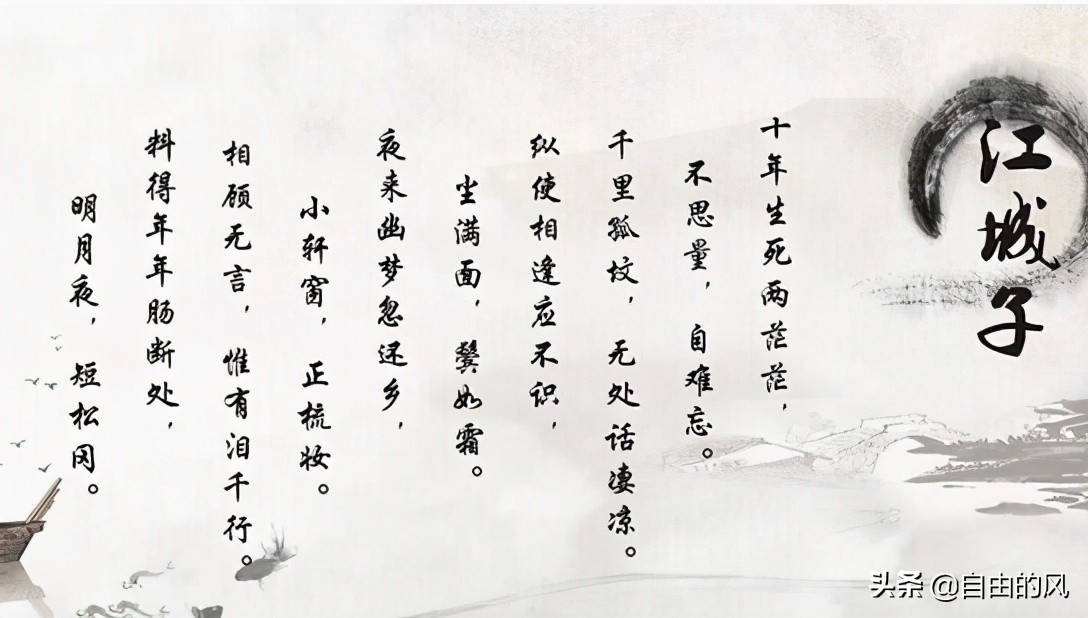 江城子
十年生死两茫茫，
不思量，自难忘。
千里孤坟，无处话凄凉。
纵使相逢应不识，
尘满面，鬓如霜。
夜来幽梦忽还乡，
小轩窗，正梳妆。
相顾无言，惟有泪千行。
料得年年肠断处，
明月夜，短松冈。
头条 @自由的风